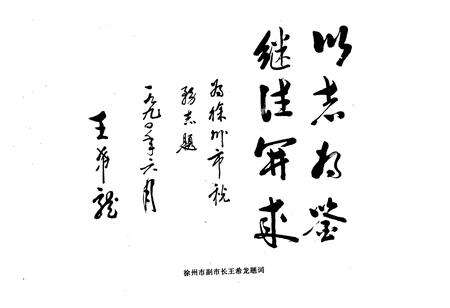 以志为鉴
继往开来
为徐州市税
务志题
一九九〇年六月
王希龙
徐州市副市长王希龙题词